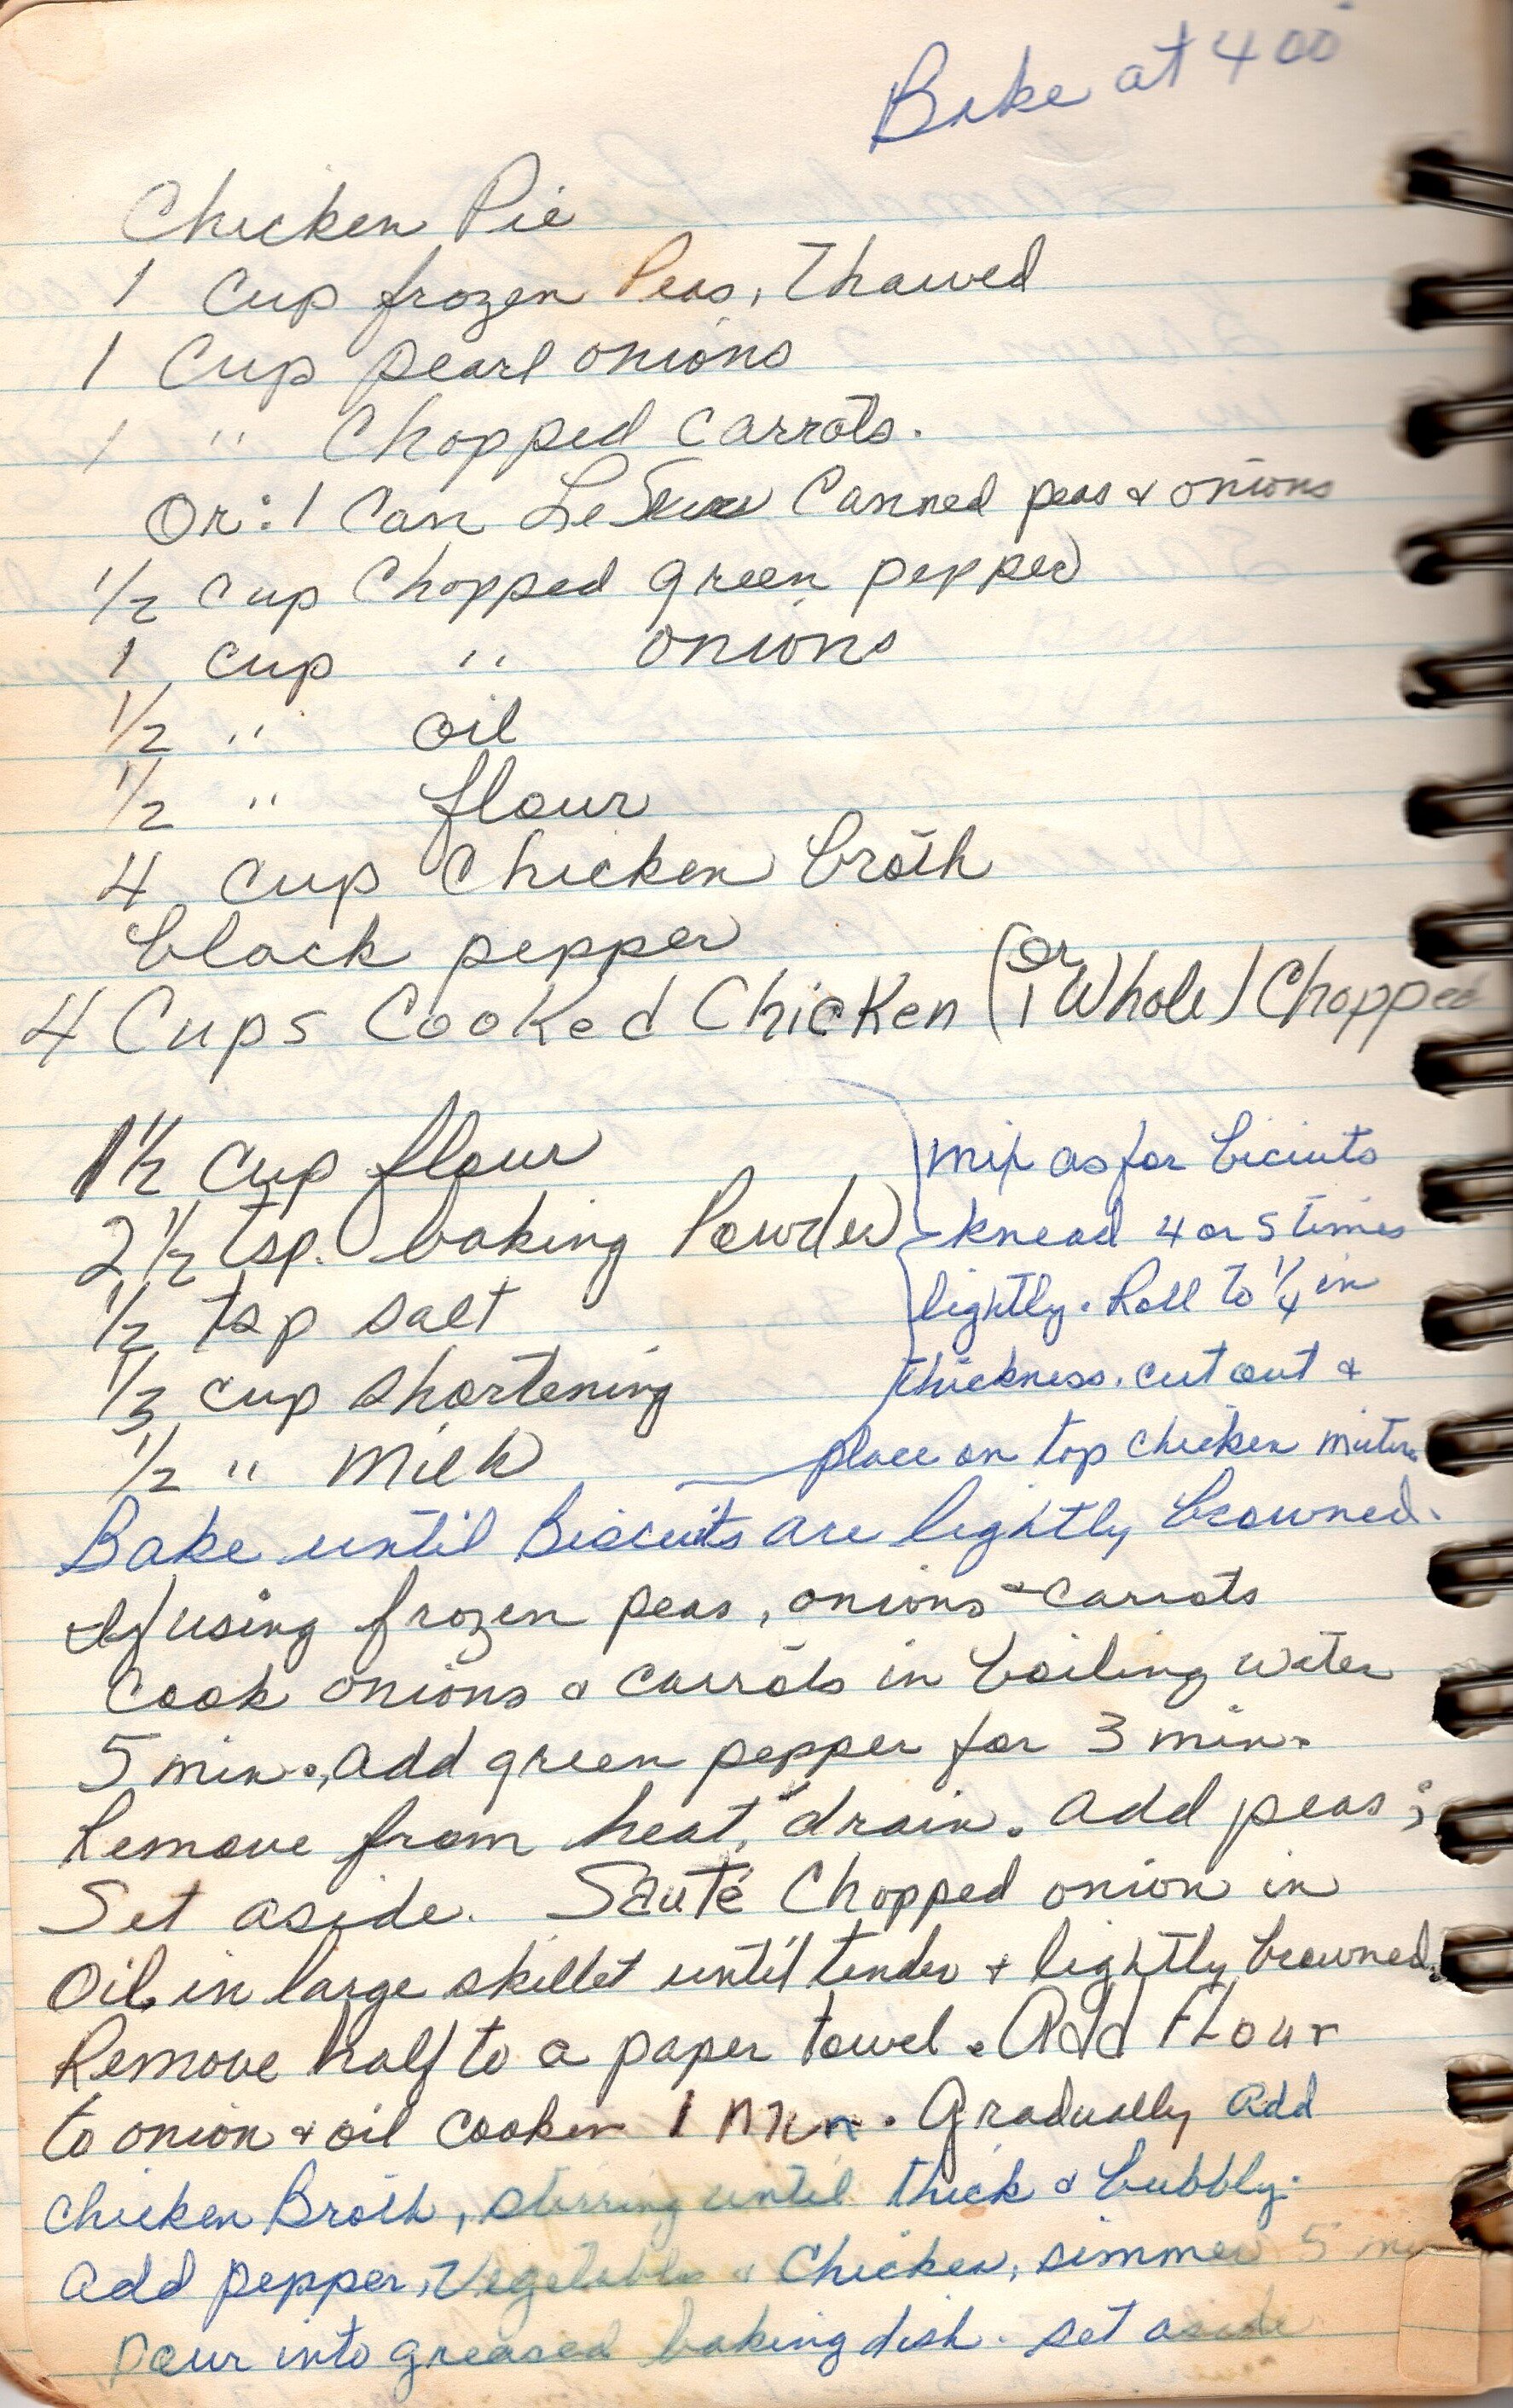 Bake at 400
Chicken Pie
1 Cup frozen Peas, Thawed
1 Cup pearl onions
1 " Chopped Carrots.
Or: 1 Can Le Canned peas & onions
1/2 Cup Chopped green pepper
1 cup " onions
1/2 " oil
1/2 " flour
4 cup Chicken broth
black pepper
4 Cups Cooked Chicken (or 1 Whole) Chopped
1 1/2 cup flour
2 1/2 tsp. baking Powder
1/2 tsp salt
1/3 cup shortening
1/2 " Milk
mix as for biciuts
knead 4 or 5 times
lightly. Roll to 1/4 in
thickness. cut out &
place on top chicken
Bake until Biscuits are lightly browned.
If using frozen peas, onions & carrots
Cook onions & carrots in boiling water
5 min., add green pepper for 3 min.
Remove from heat, drain. add peas;
Set aside. Sauté Chopped onion in
Oil in large skillet until tender & lightly browned.
Remove half to a paper towel. Add Flour
to onion & oil 1 Min. Gradually add
Chicken Broth, stirring until thick & bubbly.
add pepper, Vegetables & Chicken, simmer 5
pour into greased baking dish. set aside